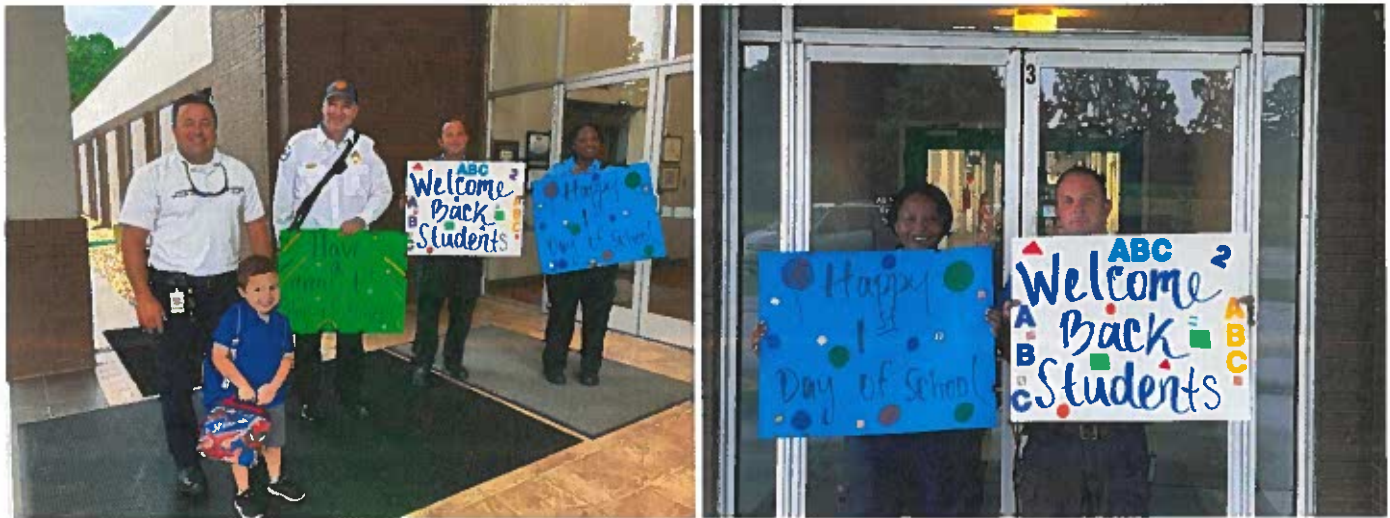 ABC
2
Welcome
Back
Students
A
B
C
A
B
C
Happy
1
Day of School
Have
3
Happy
1st
Day of School
ABC
2
Welcome
Back
Students
A
B
C
A
B
C